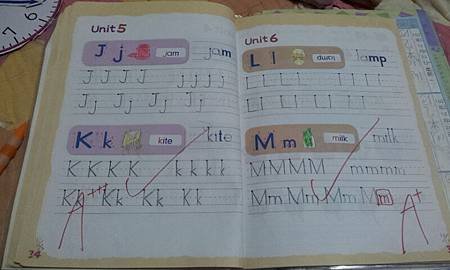 Unit5
J j jam jam
J J J J j j j j
Jj Jj Jj Jj
K k kite kite
K K K K k k k k
Kk Kk Kk Kk
34
Unit6
L l lamp
L L L L l l l l
Ll Ll Ll Ll
M m milk milk
MMMM mmmmm
Mm Mm Mm Mm
A+